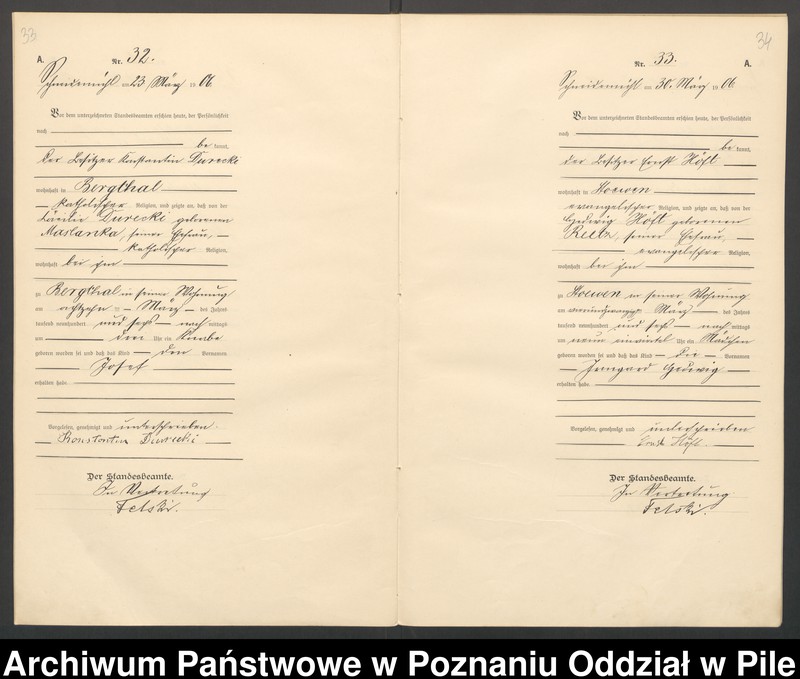 33
A.
Nr. 32.
Schneidemühl am 23 März 1906.
Vor dem unterzeichneten Standesbeamten erschien heute, der Persönlichkeit
nach
be kannt,
der Besitzer Konstantin Durecki
wohnhaft in Bergthal
katholischer Religion, und zeigte an, daß von der
Cäcilie Durecki geborenen
Maslanka, seiner Ehefrau,
katholischer Religion,
wohnhaft bei ihm
zu Bergthal in seiner Wohnung
am achtzehn ten März des Jahres
tausend neunhundert und sechs nach mittags
um drei Uhr ein Knabe
geboren worden sei und daß das Kind den Vornamen
Josef
erhalten habe.
Vorgelesen, genehmigt und unterschrieben.
Konstantin Durecki
Der Standesbeamte.
In Vertretung
Fetski.
34
Nr. 33.
A.
Schneidemühl am 30. März 1906.
Vor dem unterzeichneten Standesbeamten erschien heute, der Persönlichkeit
nach
be kannt,
der Besitzer Ernst Höft
wohnhaft in
evangelischer Religion, und zeigte an, daß von der
Hedwig Höft geborenen
Reetz, seiner Ehefrau,
evangelischer Religion,
wohnhaft bei ihm
zu in seiner Wohnung
am März des Jahres
tausend neunhundert und sechs nach mittags
um neun einviertel Uhr ein Mädchen
geboren worden sei und daß das Kind die Vornamen
Irmgard Hedwig
erhalten habe.
Vorgelesen, genehmigt und unterschrieben
Ernst Höft.
Der Standesbeamte.
In Vertretung
Fetski.
Archiwum Państwowe w Poznaniu Oddział w Pile